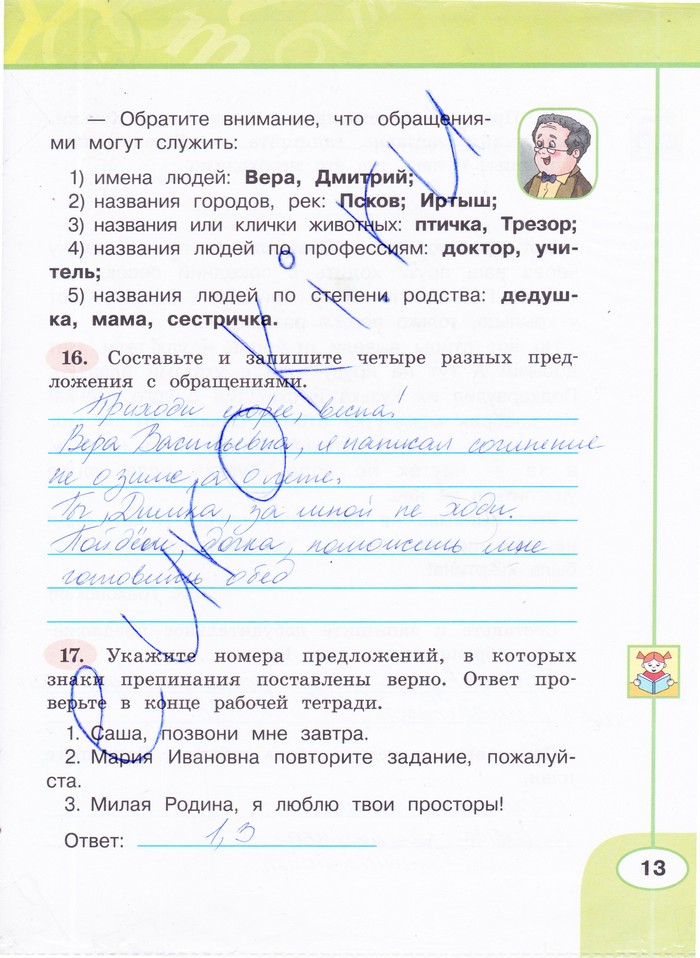 — Обратите внимание, что обращения-
ми могут служить:
1) имена людей: Вера, Дмитрий;
2) названия городов, рек: Псков; Иртыш;
3) названия или клички животных: птичка, Трезор;
4) названия людей по профессиям: доктор, учи-
тель;
5) названия людей по степени родства: дедуш-
ка, мама, сестричка.
16. Составьте и запишите четыре разных пред-
ложения с обращениями.
Приходи скорее, весна!
Вера Васильевна, я написал сочинение
не о зиме, а о лете.
Ты, Димка, за мной не ходи.
Пойдём, дочка, поможешь мне
готовить обед
17. Укажите номера предложений, в которых
знаки препинания поставлены верно. Ответ про-
верьте в конце рабочей тетради.
1. Саша, позвони мне завтра.
2. Мария Ивановна повторите задание, пожалуй-
ста.
3. Милая Родина, я люблю твои просторы!
Ответ: 1,3
13